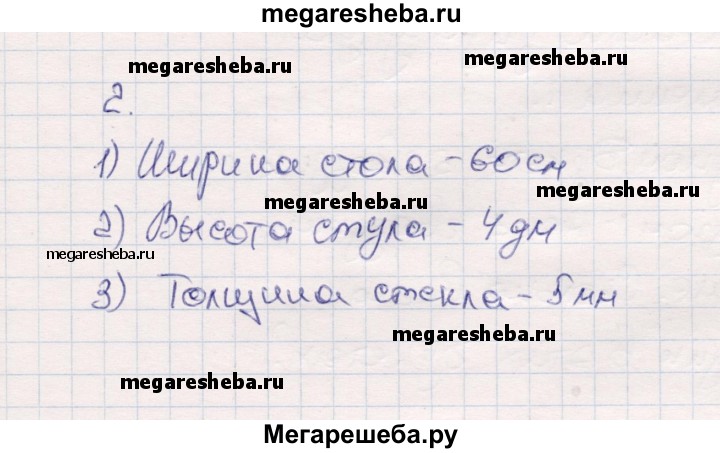 megaresheba.ru
megaresheba.ru
megaresheba.ru
2.
1) Ширина стола - 60 см
megaresheba.ru
2) Высота стула - 4 дм
megaresheba.ru
3) Толщина стекла - 5 мм
megaresheba.ru
megaresheba.ru
Мегарешеба.ру